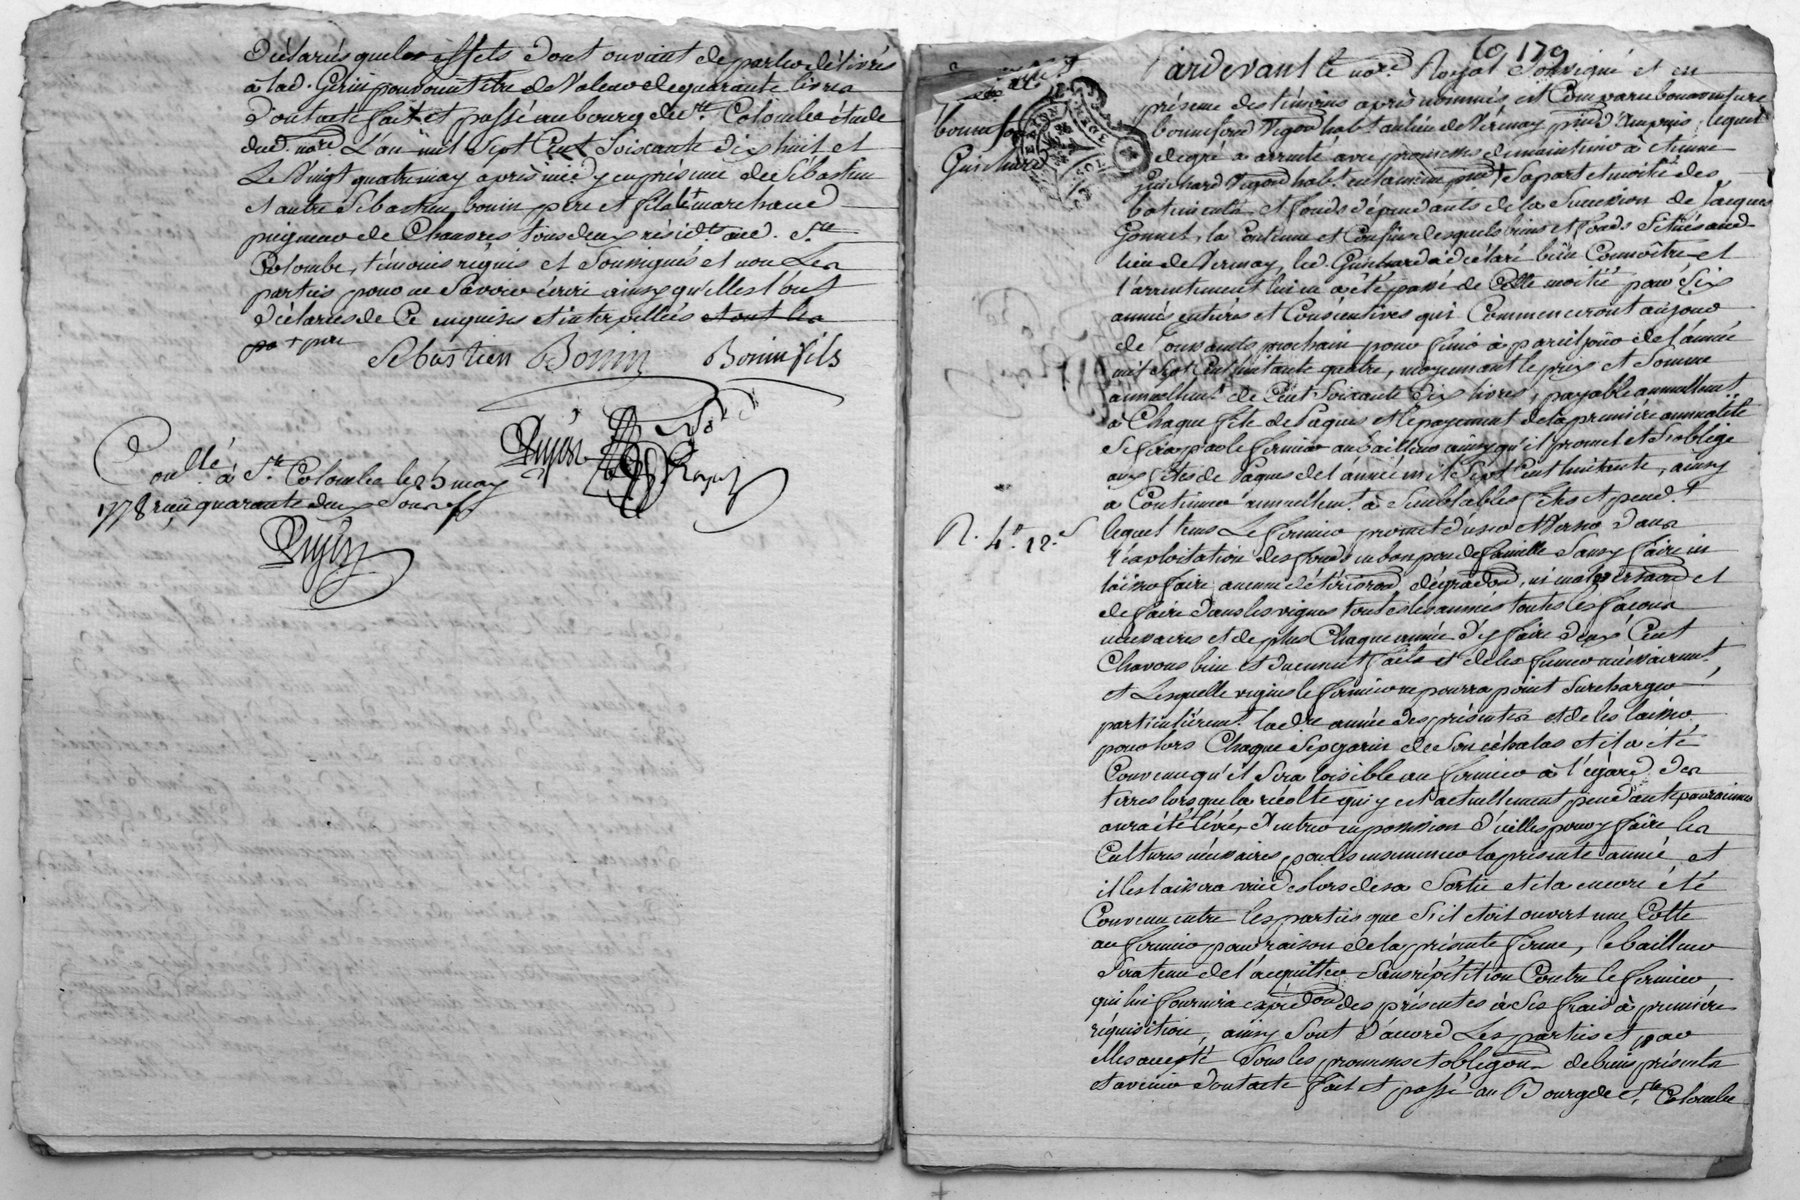 déclarés que les effets dont ouvrant de parler délivrés
à lad. Gerin pouvoint être de valeur de quarante livres
dont acte fait et passé au bourg de Ste Colombe étude
dud. nore L'an mil sept Cent soixante dix huit et
Le vingt quatre may après midy en présence de Sébastien
et autre Sébastien bonin père et fils marchand
peigneur de Chanvres tous deux résidts aud. Ste
Colombe, témoins réquis et soussignés et non Les
parties pour ne savoir écrire ainsy qu'elles l'ont
déclarées de Ce enquises et interpellées et ont les
pa + père
Sebastien Bonin Bonin fils
Pujin
Conllé à Ste Colombe le 25 may
1778 reçu quarante deux sous
Pujin
69 179
Pardevant le nore Royal soussigné et en
présence des témoins après nommés est Comparu bonaventure
bonnefond vigon habt au lieu de Vernay psse d'Ampuis, lequel
de gré a arrenté avec promesses de maintenir à étienne
Guichard vigon habt en la même psse sa part et moitié des
batiments et fonds dépendants de la Succession de Jacques
Gonnet, la Contenue et Confins desquels biens et fonds situés aud.
lieu de Vernay, led. Guichard a déclaré bien Connoître et
l'arrentement lui en a été passé de Cette moitié pour six
années entières et Consécutives qui Commenceront au jour
de Toussaints prochain pour finir à pareil jour de l'année
mil sept Cent huitante quatre, moyennant le prix et somme
annuellemt de Cent soixante dix livres, payable annuellemt
à Chaque fête de Paques et le payement de la première annualité
se fera par le fermier au bailleur ainsy qu'il promet et s'oblige
aux fêtes de Paques de l'année mil sept Cent huitante, ainsy
à Continuer annuellemt à semblables fêtes et pendt
lequel tems Le fermier promet d'user et verser dans
l'exploitation des fonds en bon père de famille sans y faire ni
laisser faire aucune détériorаon dégradaon, ni malversaon et
de faire dans les vignes toutes les années toutes les façons
nécessaires et de plus Chaque année d'y faire deux Cent
Chavons bien et duement faits et de les fumer nécessairemt
et Lesquelle vignes le fermier ne pourra point surcharger
particulièremt la dre année des présentes et de les laisser
pour lors Chaque sep garni de son échalas et il a été
Convenu qu'il sera loisible au fermier à l'égard des
terres lorsque la récolte qui y est actuellement pendante par racines
aura été levée, d'entrer en possession d'icelles pour y faire les
Cultures nécessaires pour les ensemencer la présente année et
il les laissera vuides lors de sa sortie et il a encore été
Convenu entre les parties que s'il étoit ouvert une Cotte
au fermier pour raison de la présente ferme, le bailleur
sera tenu de l'acquitter sans répétition Contre le fermier
qui lui fournira expédon des présentes à ses frais à première
réquisition, ainsy sont d'accord Les parties et par
elles accepté sous les promesses et obligaon de biens présents
et avenir dont acte fait et passé au Bourg de Ste Colombe
bonnefond
Guichard
R. 4tt. 12. s